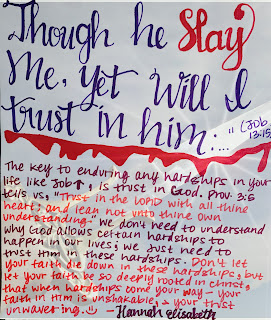 Though he Slay
Me, Yet Will I
trust in him:..." (Job
13:15)
The key to enduring any hardships in your
life like Job↑, is trust in God. Prov. 3:5
tells us, "Trust in the LORD with all thine
heart; and lean not unto thine own
understanding." We don't need to understand
why God allows certain hardships to
happen in our lives; we just need to
trust Him in these hardships. Don't let
your faith die down in these hardships, but
let your faith be so deeply rooted in Christ,
that when hardships come your way - your
faith in Him is unshakable; & your trust
unwavering. ☺ -Hannah Elisabeth